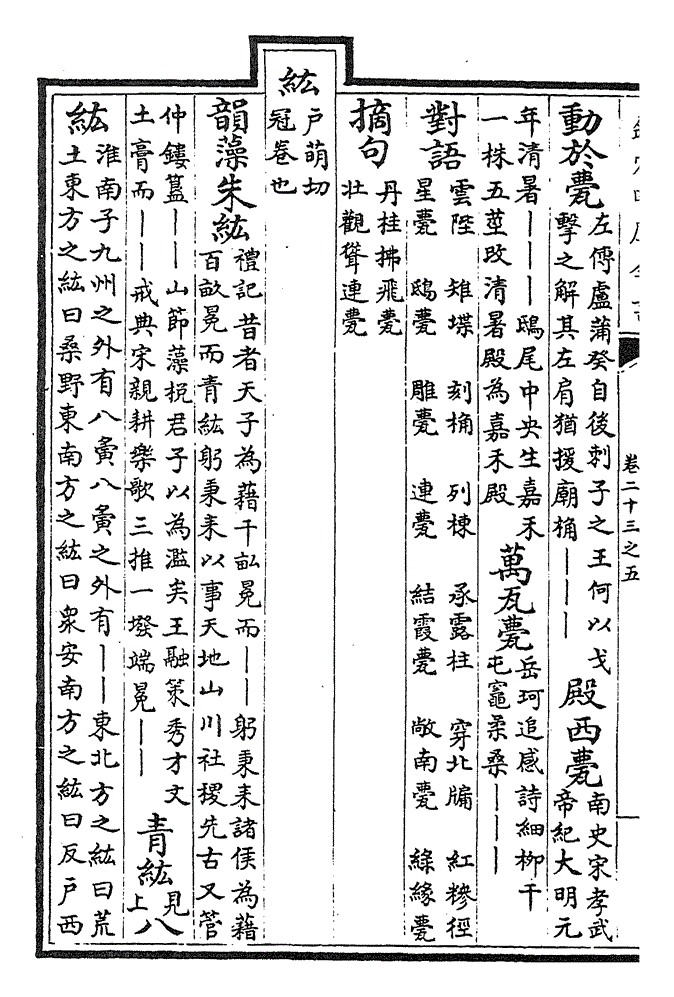 卷二十三之五
動於甍左傳盧蒲癸自後刺子之王何以戈
擊之解其左肩猶援廟桷｜｜｜殿西甍南史宋孝武
帝紀大明元
年清暑｜｜｜鴟尾中央生嘉禾
一株五莖改清暑殿為嘉禾殿萬瓦甍岳珂追感詩細柳千
屯竈柔桑｜｜｜
對語雲陛 雉堞 刻桷 列棟 承露柱 穿北牖 紅糝徑
星甍 鴟甍 雕甍 連甍 結霞甍 敞南甍 緑緣甍
摘句丹桂拂飛甍
壯觀聳連甍
紘戸萌切
冠卷也
韻藻朱紘禮記昔者天子為藉千畝冕而｜｜躬秉耒諸侯為藉
百畝冕而青紘躬秉耒以事天地山川社稷先古又管
仲鏤簋｜｜山節藻梲君子以為濫矣王融策秀才文
土膏而｜｜戒典宋親耕樂歌三推一墢端冕｜｜青紘見
上八
紘淮南子九州之外有八夤八夤之外有｜｜東北方之紘曰荒
土東方之紘曰桑野東南方之紘曰衆安南方之紘曰反戸西